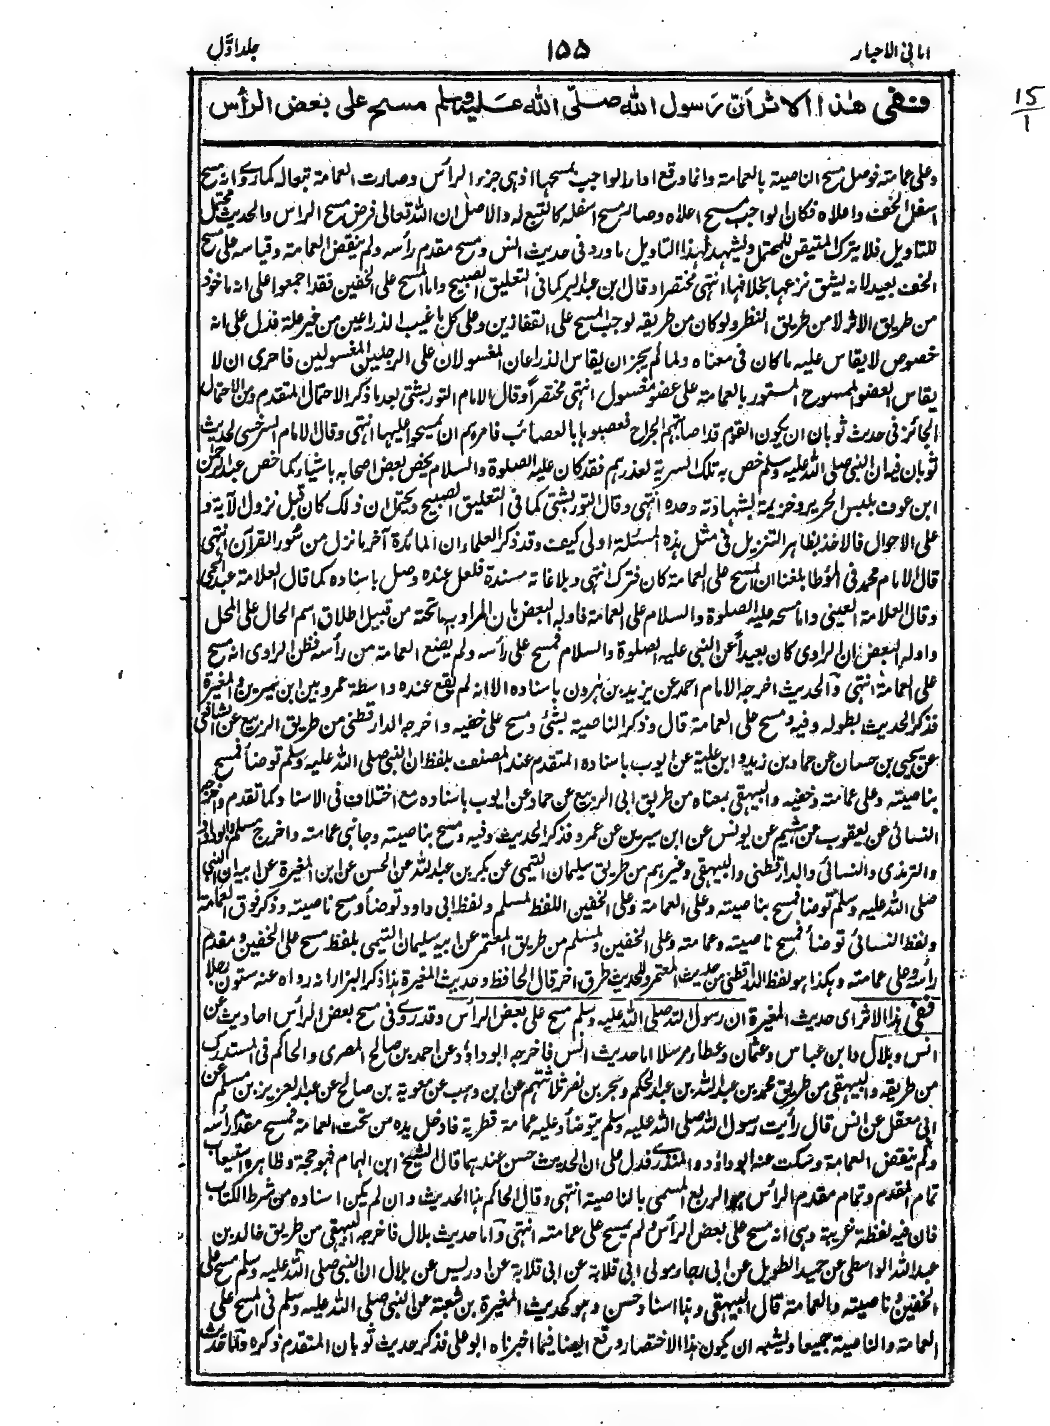 امانی الاحبار
۱۵۵
جلد اوّل
15
1
ففی هٰذا الاثر أنّ رسول الله صلّی الله علیه وسلم مسح علی بعض الرأس
وعلی عمامته فوصل مسح الناصیة بالعمامة وانما وقع اداء الواجب بمسحها اذ هی جزء الرأس وصارت العمامة تبعا له کما روی انه مسح
اسفل الخف واعلاه فکان الواجب مسح اعلاه وصار مسح اسفله کالتبع له والاصل ان الله تعالی فرض مسح الراس والحدیث محتمل
للتاویل فلا یترک المتیقن للمحتمل ویشهد لهذا التاویل ما ورد فی حدیث انس ومسح مقدم رأسه ولم ینقض العمامة وقیاسه علی مسح
الخف بعید لانه یشق نزعها بخلافها انتهی مختصرا وقال ابن عبد البر کما فی التعلیق الصبیح واما المسح علی الخفین فقد اجمعوا علی انه ماخوذ
من طریق الاثر لا من طریق النظر ولو کان من طریقه لوجب المسح علی القفازین وعلی کل ما غیب الذراعین من غیر علة فدل علی انه
خصوص لا یقاس علیه ما کان فی معناه ولما لم یجز ان یقاس الذراعان المغسولان علی الرجلین المغسولین فاحری ان لا
یقاس العضو الممسوح المستور بالعمامة علی عضو مغسول انتهی مختصراً وقال الامام التوربشتی بعد ما ذکر الاحتمال المتقدم ومن الاحتمال
الجائز فی حدیث ثوبان ان یکون القوم قد اصابتهم الجراح فعصبوها بالعصائب فامرهم ان یمسحوا علیها انتهی وقال الامام السرخسی لحدیث
ثوبان فیه ان النبی صلی الله علیه وسلم خص به تلک السریة لعذر بهم فقد کان علیه الصلوة والسلام یخص بعض اصحابه باشیاء کما خص عبد الرحمن
ابن عوف بلبس الحریر وخزیمة بشهادته وحده انتهی وقال التوربشتی کما فی التعلیق الصبیح ویحتمل ان ذلک کان قبل نزول الآیة و
علی الاحوال فالاخذ بظاهر التنزیل فی مثل هذه المسئلة اولی کیف وقد ذکر العلماء ان المائدة آخر ما نزل من سور القرآن انتهی
قال الامام محمد فی المؤطا بلغنا ان المسح علی العمامة کان فترک انتهی وبلاغاته مسندة فلعل عنده وصل باسناده کما قال العلامة عبد الحی
وقال العلامة العینی واما مسحه علیه الصلوة والسلام علی العمامة فاوله البعض بان المراد به ما تحته من قبیل اطلاق اسم الحال علی المحل
واوله البعض ان الراوی کان بعیداً عن النبی علیه الصلوة والسلام فمسح علی رأسه ولم یضع العمامة من رأسه فظن الراوی انه مسح
علی العمامة انتهی والحدیث اخرجه الامام احمد عن یزید بن هٰرون باسناده الا انه لم یقع عنده واسطة عمرو بین ابن سیرین والمغیرة
فذکر الحدیث بطوله وفیه ومسح علی العمامة قال وذکر الناصیة بشئ ومسح علی خفیه واخرجه الدارقطنی من طریق الربیع عن الشافعی
عن یحیی بن حسان عن حماد بن زید وابن علیة عن ایوب باسناده المتقدم عند المصنف بلفظ ان النبی صلی الله علیه وسلم توضأ فمسح
بناصیته وعلی عمامته وخفیه والبیهقی بمعناه من طریق ابی الربیع عن حماد عن ایوب باسناده مع اختلاف فی الاسناد کما تقدم واخرجه
النسائی عن یعقوب عن هشیم عن یونس عن ابن سیرین عن عمرو فذکر الحدیث وفیه ومسح بناصیته وجانبی عمامته واخرج مسلم وابو داؤد
والترمذی والنسائی والدارقطنی والبیهقی وغیرهم من طریق سلیمان التیمی عن بکر بن عبد الله عن الحسن عن ابن المغیرة عن ابیه ان النبی
صلی الله علیه وسلم توضا فمسح بناصیته وعلی العمامة وعلی الخفین اللفظ لمسلم ولفظ ابی داود توضأ ومسح ناصیته وذکر فوق العمامة
ولفظ النسائی توضأ فمسح ناصیته وعمامته وعلی الخفین ولمسلم من طریق المعتمر عن ابیه سلیمان التیمی بلفظ مسح علی الخفین ومقدم
رأسه وعلی عمامته وهکذا هو لفظ الدارقطنی من حدیث المعتمر وللحدیث طرق اخر قال الحافظ وحدیث المغیرة هذا ذکر البزار انه رواه عنه ستون رجلا
ففی هذا الاثر ای حدیث المغیرة ان رسول الله صلی الله علیه وسلم مسح علی بعض الرأس وقد روی فی مسح بعض الرأس احادیث عن
انس وبلال وابن عباس وعثمان وعطاء مرسلا اما حدیث انس فاخرجه ابو داؤد عن احمد بن صالح المصری والحاکم فی المستدرک
من طریقه والبیهقی من طریق محمد بن عبد الله بن عبد الحکم وبحر بن نصر ثلاثتهم عن ابن وهب عن معویة بن صالح عن عبد العزیز بن مسلم عن
ابی معقل عن انس قال رأیت رسول الله صلی الله علیه وسلم یتوضأ وعلیه عمامة قطریة فادخل یده من تحت العمامة فمسح مقدم رأسه
ولم ینقض العمامة وسکت عنه ابو داؤد والمنذری فدل علی ان الحدیث حسن عندهما قال الشیخ ابن الهمام فهو حجة وظاهره استیعاب
تمام المقدم وتمام مقدم الراس هو الربع المسمی بالناصیة انتهی وقال الحاکم هذا الحدیث وان لم یکن اسناده من شرط الکتاب
فان فیه لفظة غریبة وهی انه مسح علی بعض الرأس ولم یمسح علی عمامته انتهی واما حدیث بلال فاخرجه البیهقی من طریق خالد بن
عبد الله الواسطی عن حمید الطویل عن ابی رجاء مولی ابی قلابة عن ابی قلابة عن ادریس عن بلال ان النبی صلی الله علیه وسلم مسح علی
الخفین وناصیته والعمامة قال البیهقی وهذا اسناد حسن وهو کحدیث المغیرة بن شعبة عن النبی صلی الله علیه وسلم فی المسح علی
العمامة والناصیة جمیعا ویشبه ان یکون هذا الاختصار وقع ایضا فیما اخبرناه ابو علی فذکر حدیث ثوبان المتقدم ذکره واما حدیث